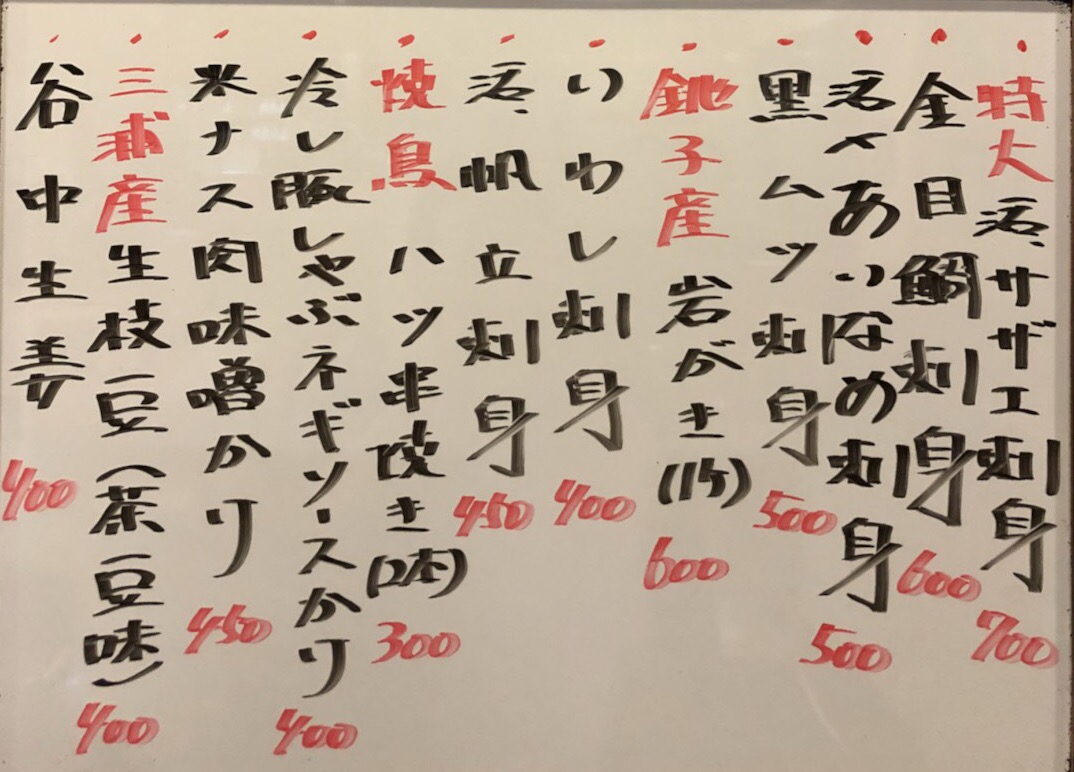 特大活、サザエ刺身 700
金目鯛刺身 600
活〆あいなめ刺身 500
黒ムツ刺身 500
銚子産 岩がき(1ケ) 600
いわし刺身 400
活、帆立刺身 450
焼鳥 ハツ串焼き(2本) 300
冷し豚しゃぶネギソースかけ 400
米ナス肉味噌かけ 450
三浦産生枝豆(茶豆味) 400
谷中生姜 400